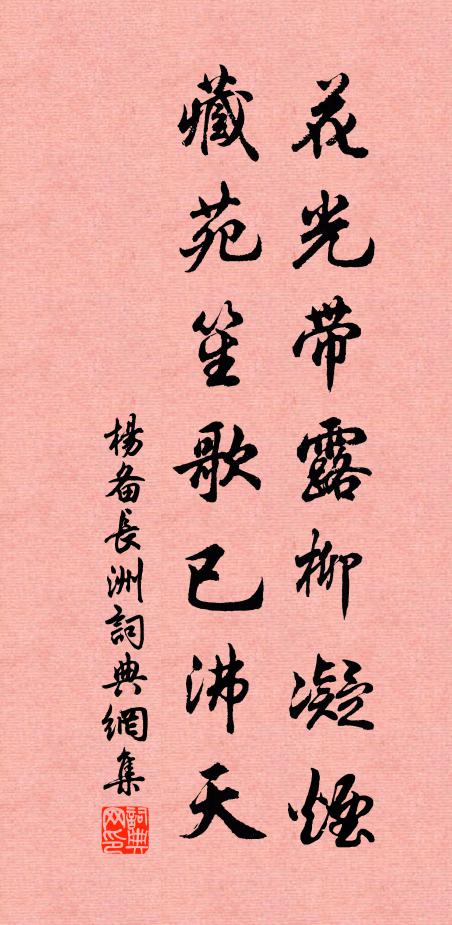 花光带露柳凝烟
藏苑笙歌已沸天
楊备長洲詞典網集
詞典网印